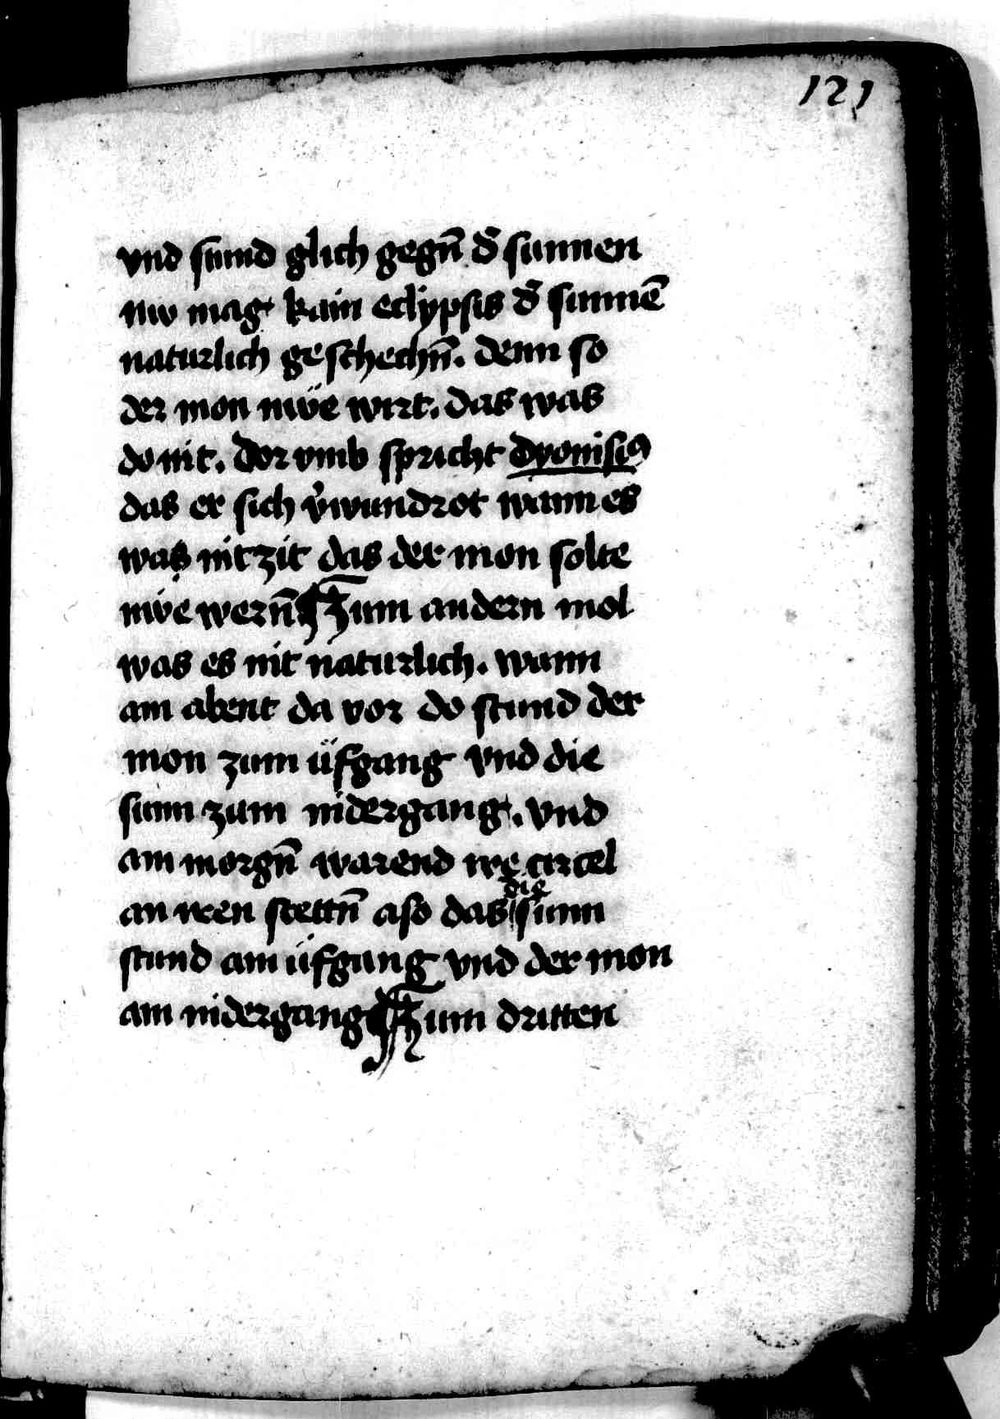 121
vnd stund glich gegn̄ d᷑ sunnen
nw mag kain eclypsis d᷑ sunnē
naturlich geschechn̄. denn so
der mon nwe wirt. das was
do nit. dor vmb spricht dyonisiꝰ
das er sich v᷑wundrot wann es
was nit zit das der mon solte
nwe wern̄ ¶ Zum andern mol
was es nit naturlich. wann
am abent da vor do stund der
mon zum ufgang vnd die
sunn zum nidergang. vnd
am morgn̄ warend ire circel
an iren stettn̄ also das die sunn
stund am ufgang vnd der mon
am nidergang ¶ Zum dritten